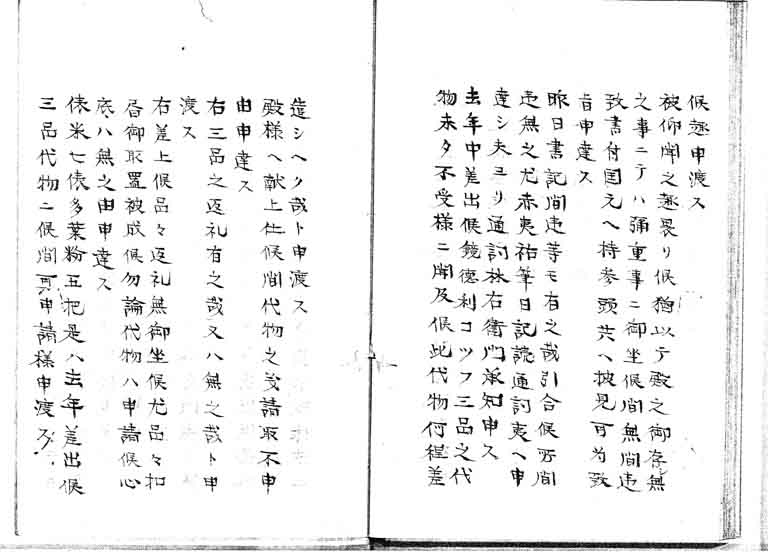 候趣申渡ス
被仰聞之趣畏リ候猶以テ殿之御存無
之事ニテハ弥重事ニ御坐候間無間違
致書付国元ヘ持参頭共ヘ披見可為致
旨申達ス
昨日書記間違等モ有之哉引合候所間
違無之尤赤夷祐筆日記読通詞夷ヘ申
達シ夫ヨリ通詞林右衛門承知申ス
去年中差出候鏡徳利コツフ三品之代
物未タ不受様ニ聞及候此代物何程差
遣シヘク哉ト申渡ス
殿様ヘ献上仕候間代物之義請取不申
由申達ス
右三品之返礼有之哉又ハ無之哉ト申
渡ス
右差上候品々返礼無御坐候尤品々和
御取置被成候勿論代物ハ申請候心
底ハ無之由申達ス
俵米七俵多葉粉五把是ハ去年差出候
三品代物ニ候間可申請様申渡ス